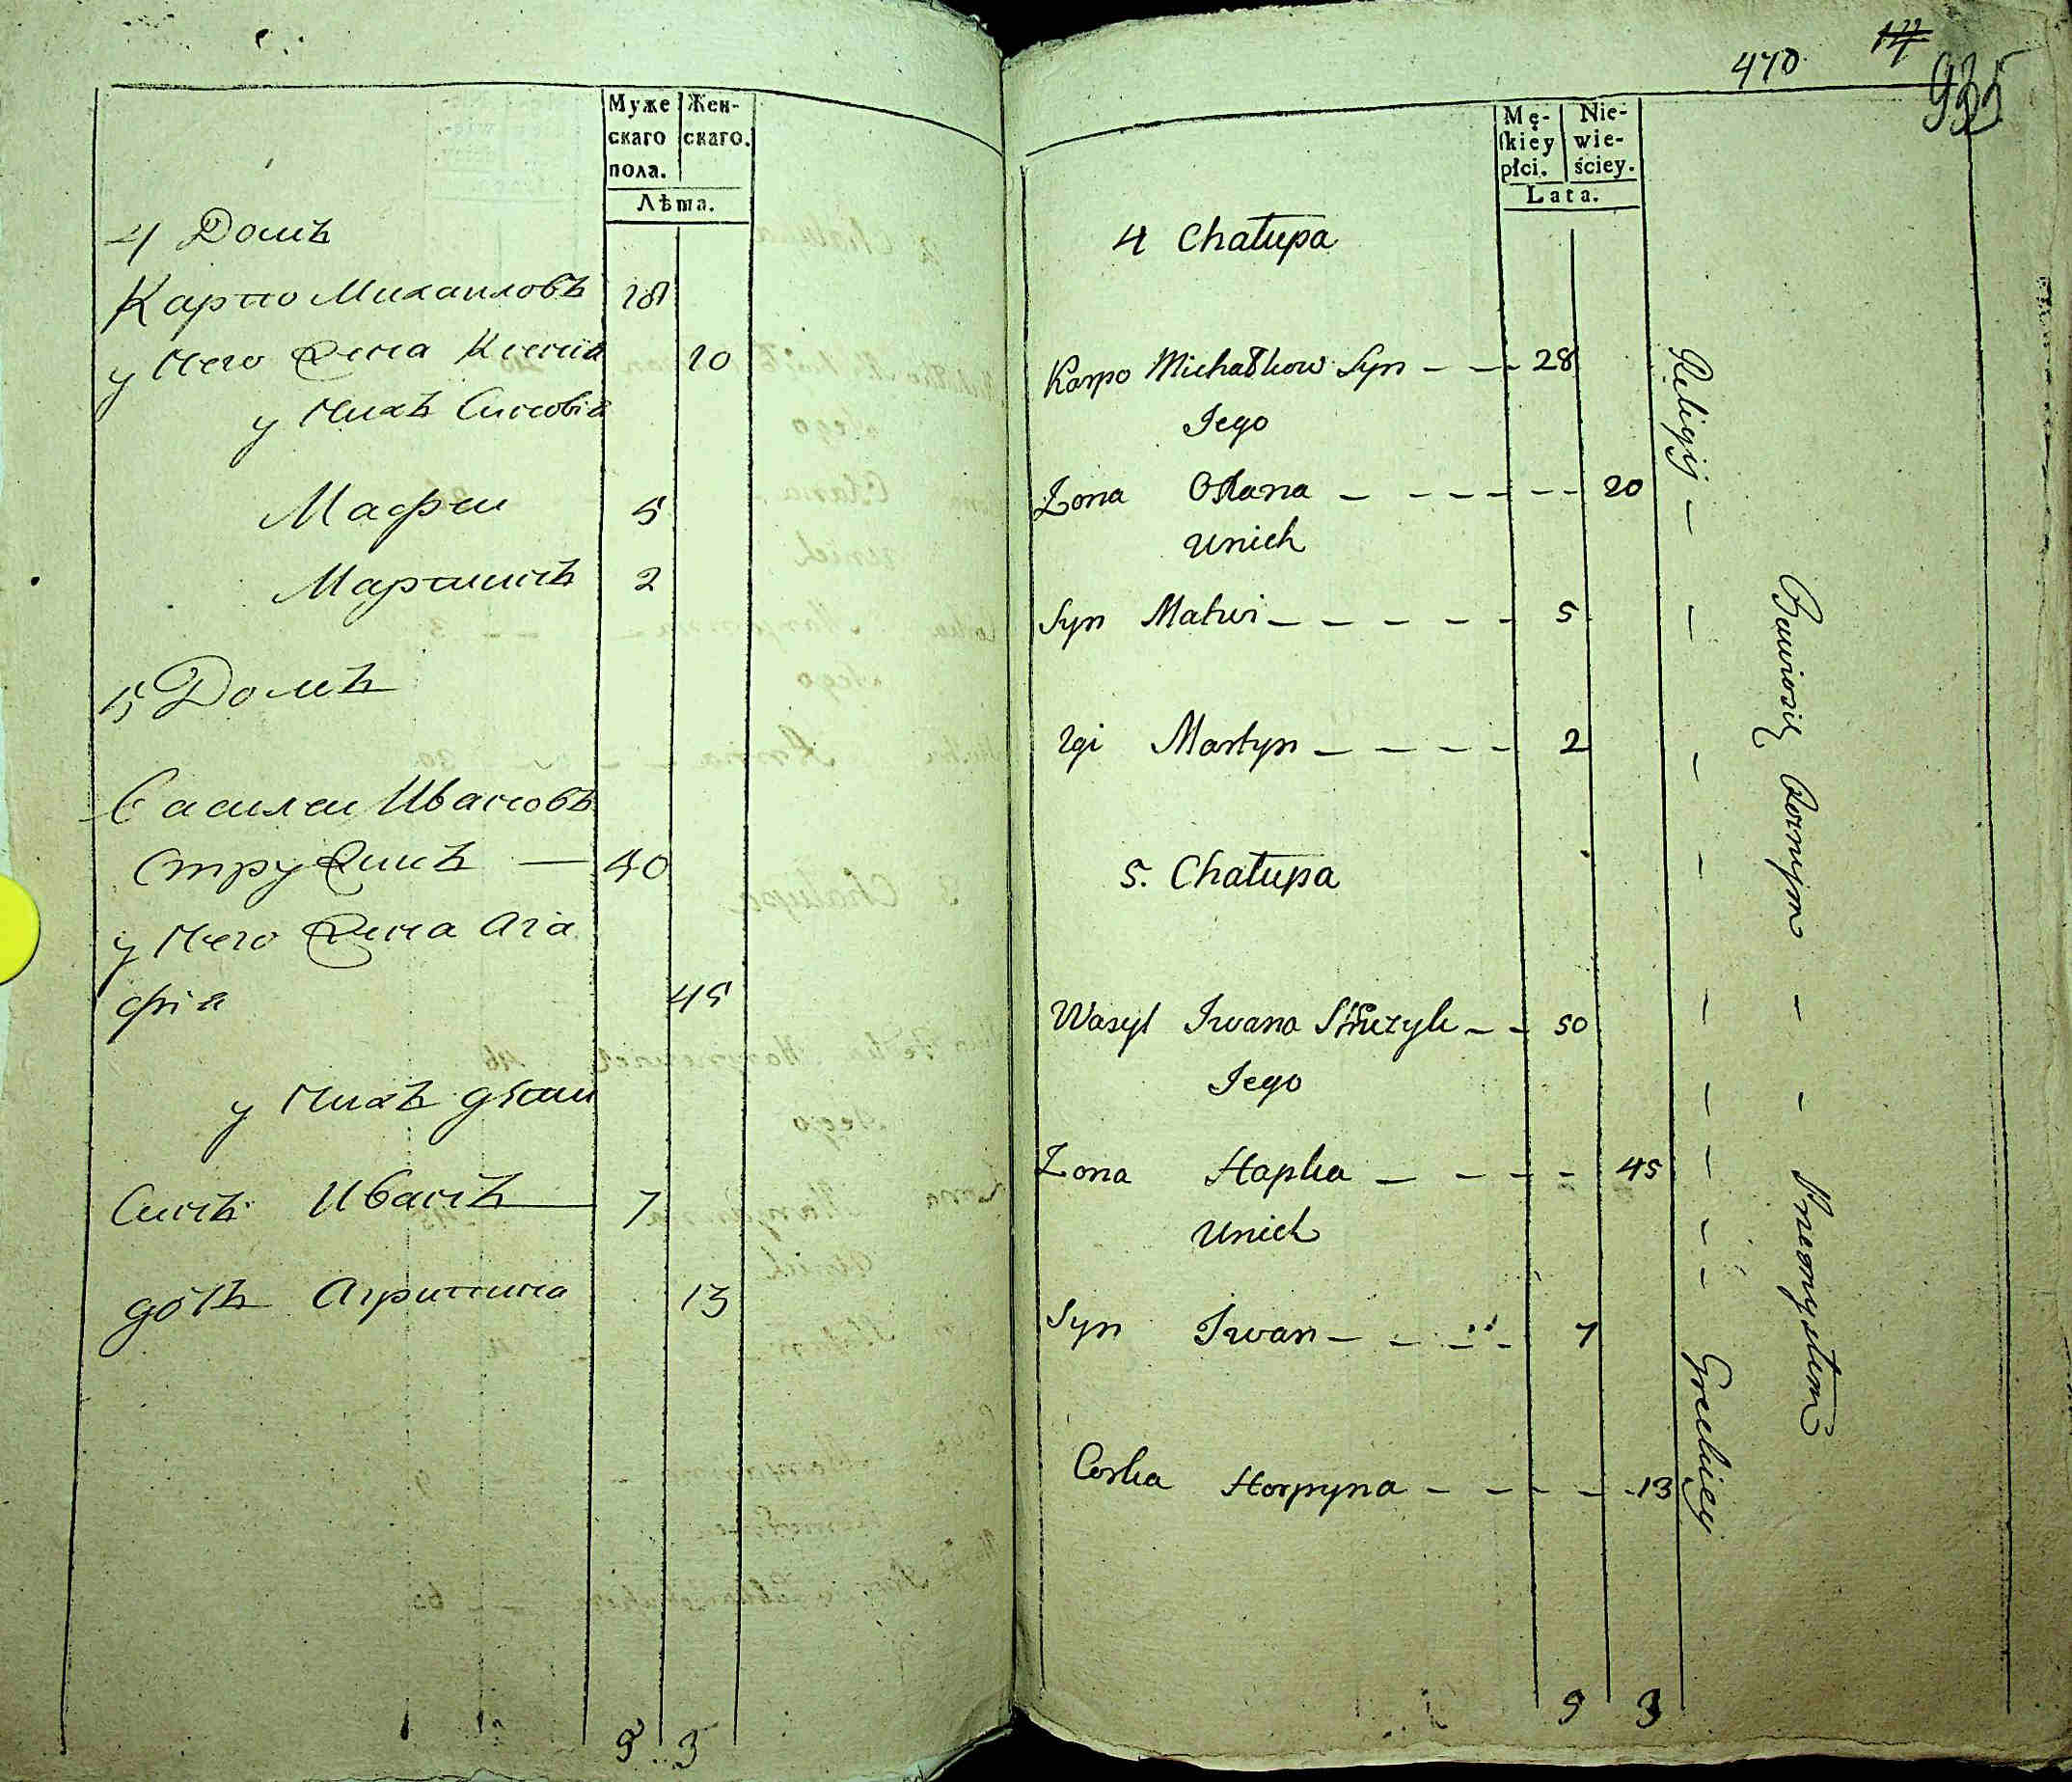 Муже
скаго
пола.
Жен-
скаго.
Лѣта.
4 Домъ
Карпо Михаиловъ 28
у Него Жена Ксенiя 20
у Нихъ Сыновiя
Мафеи 5
Мартинъ 2
5 Домъ
Василеи Ивановъ
Стружикъ — 40
у Него Жена Ага
фiя 45
у Нихъ дѣти
Синъ Иванъ 7
дочъ Агрипина 13
5 3
470 
935
Mę-
skiey
płci.
Nie-
wie-
ściey.
Lata.
4 Chałupa
Karpo Michałkow Syn — — 28
Jego
Zona Oxana — — — — — — 20
Unich
Syn Matwi — — — — — 5
2gi Martyn — — — — 2
5. Chałupa
Wasyl Iwana Struzyk — — 50
Jego
Zona Hapka — — — — 45
Unich
Syn Iwan — — — — 7
Corka Horpyna — — — — 13
5 3
Religij — — — — — — — — — Greckiey
Bawiosię Rornym — — Przemysłem